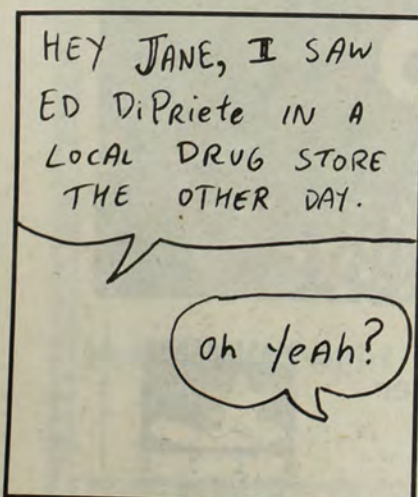 HEY JANE, I SAW
ED DiPRiete IN A
LOCAL DRUG STORE
THE OTHER DAY.
Oh YeAh?